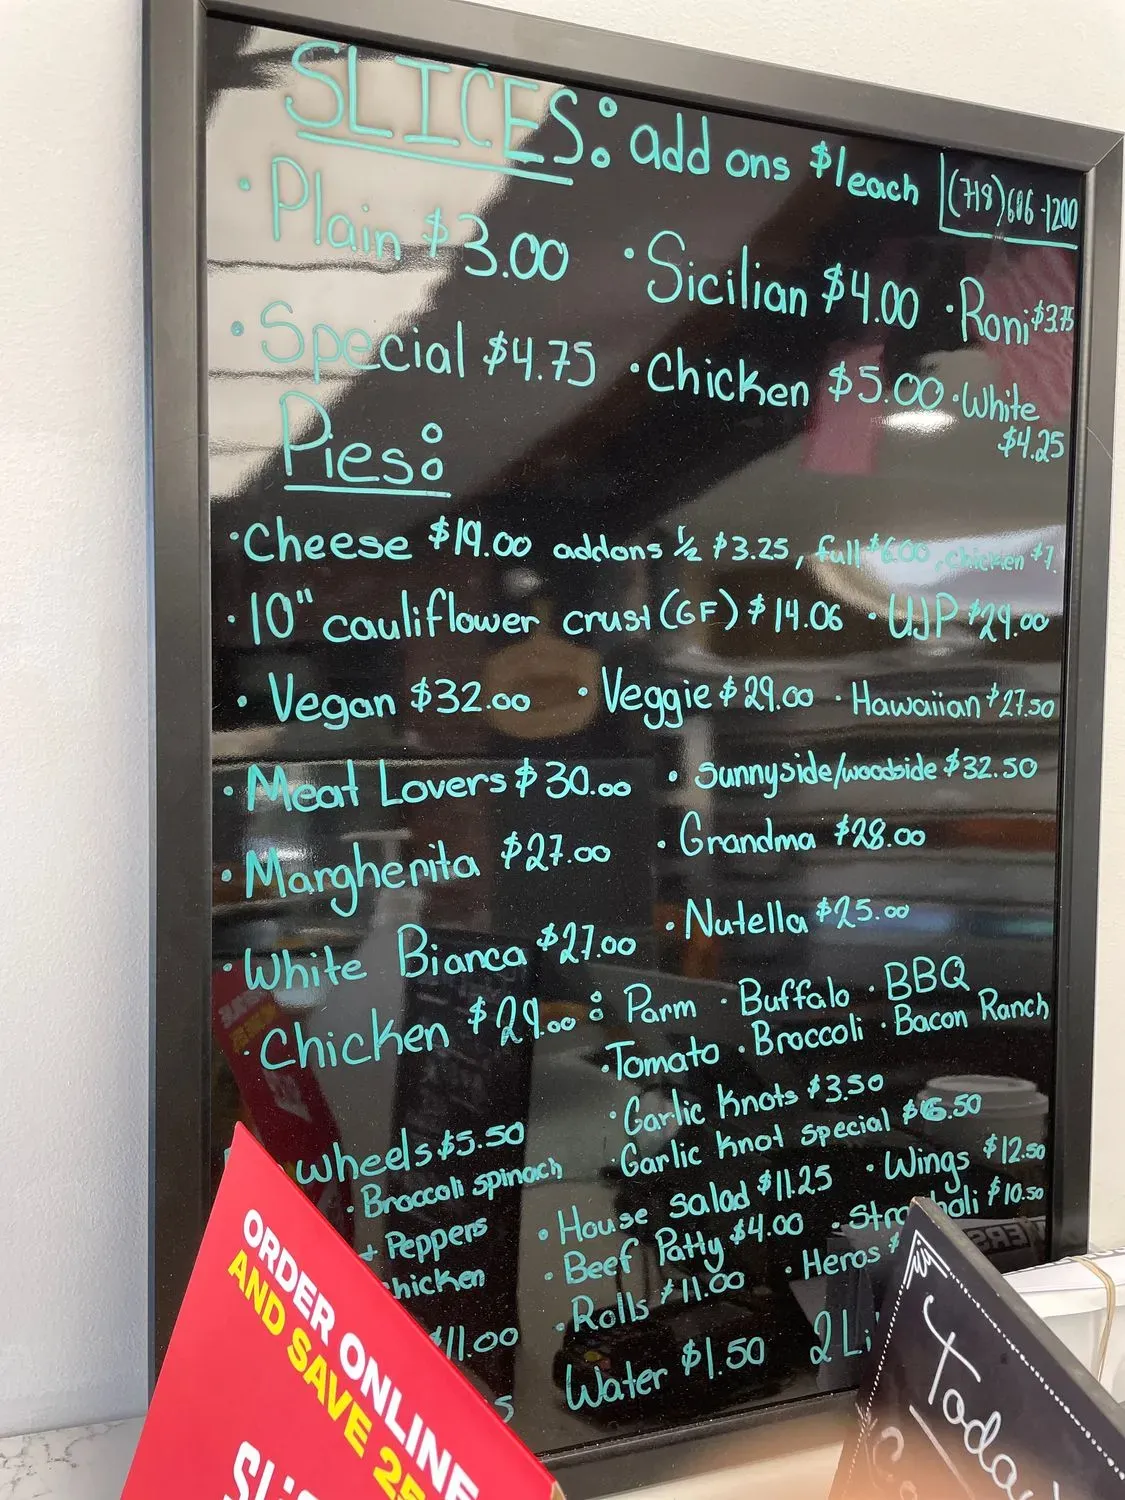 SLICES: add ons $1 each (718) 606-1200
• Plain $3.00 • Sicilian $4.00 • Roni $3.75
• Special $4.75 • Chicken $5.00 • White $4.25
Pies:
• Cheese $19.00 addons ½ $3.25, full $6.00, chicken $7.
• 10" cauliflower crust (GF) $14.06 • UJP $29.00
• Vegan $32.00 • Veggie $29.00 • Hawaiian $27.50
• Meat Lovers $30.00 • Sunnyside/woodside $32.50
• Margherita $27.00 • Grandma $28.00
• White Bianca $27.00 • Nutella $25.00
• Chicken $29.00 : Parm • Buffalo • BBQ
• Tomato • Broccoli • Bacon Ranch
• Garlic Knots $3.50
wheels $5.50 • Garlic Knot special $6.50
• Broccoli spinach • House salad $11.25 • Wings $12.50
+ Peppers • Beef Patty $4.00
hicken • Rolls $11.00 • Heros $
$11.00 Water $1.50 2 Li
ORDER ONLINE
AND SAVE 25
Today